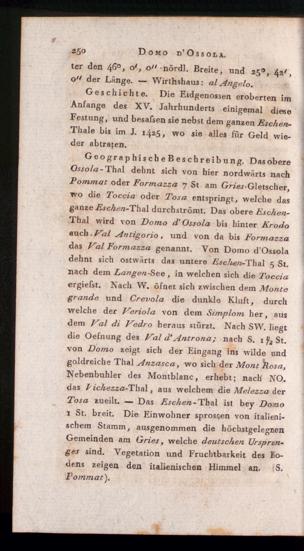 250 DOMO D'OSSOLA.
ter den 46°, 0', 0'' nördl. Breite, und 25°, 42',
0'' der Länge. — Wirthshaus: al Angelo.
Geschichte. Die Eidgenossen eroberten im
Anfange des XV. Jahrhunderts einigemal diese
Festung, und besaßen sie nebst dem ganzen Eschen-
Thale bis im J. 1425, wo sie alles für Geld wie-
der abtraten.
Geographische Beschreibung. Das obere
Ossola-Thal dehnt sich von hier nordwärts nach
Pommat oder Formazza 7 St am Gries-Gletscher,
wo die Toccia oder Tosa entspringt, welche das
ganze Eschen-Thal durchströmt. Das obere Eschen-
Thal wird von Domo d'Ossola bis hinter Krodo
auch Val Antigorio, und von da bis Formazza
das Val Formazza genannt. Von Domo d'Ossola
dehnt sich ostwärts das untere Eschen-Thal 5 St.
nach dem Langen-See, in welchen sich die Toccia
ergießt. Nach W. öfnet sich zwischen dem Monte
grande und Crevola die dunkle Kluft, durch
welche der Veriola von dem Simplom her, aus
dem Val di Vedro heraus stürzt. Nach SW. liegt
die Oefnung des Val d'Antrona; nach S. 1 1/2 St.
von Domo zeigt sich der Eingang ins wilde und
goldreiche Thal Anzasca, wo sich der Mont Rosa,
Nebenbuhler des Montblanc, erhebt; nach NO.
das Vichezza-Thal, aus welchem die Melezza der
Tosa zueilt. — Das Eschen-Thal ist bey Domo
1 St. breit. Die Einwohner sprossen von italieni-
schem Stamm, ausgenommen die höchstgelegnen
Gemeinden am Gries, welche deutschen Ursprun-
ges sind. Vegetation und Fruchtbarkeit des Bo-
dens zeigen den italienischen Himmel an. (S.
Pommat).